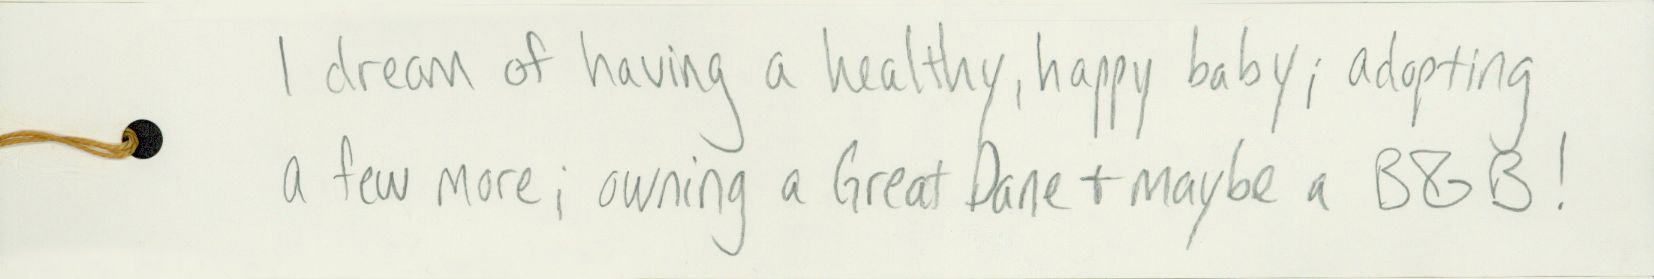 I dream of having a healthy, happy baby; adopting
a few more; owning a Great Dane + maybe a B&B!